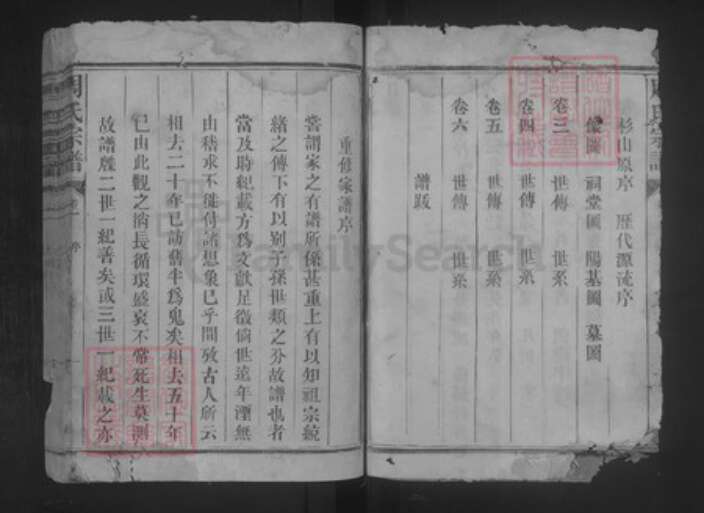 杉山原序 歷代源流序
像圖 祠堂圖 陽基圖 墓圖
卷三 世傳 世系
卷四 世傳 世系
卷五 世傳 世系
卷六 世傳 世系
譜跋
重修家譜序
嘗謂家之有譜所係甚重上有以知祖宗統
緒之傳下有以别子孫世類之分故譜也者
當及時紀載方為文獻足徵倘世遠年湮無
由稽求不徒付諸想象已乎間攷古人所云
相去二十年已訪舊半為鬼矣相去五十年
已由此觀之消長循環盛衰不常死生莫測
故譜牒二世一紀善矣或三世一紀載之亦
周氏宗譜
卷一 序
FamilySearch